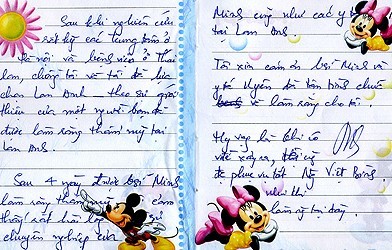 Sau khi nghiên cứu
rất kỹ các trung tâm ở
Hà nội và bệnh viện ở Thái
lan, chồng tôi và tôi đã lựa
chọn Lan Anh theo sự giới
thiệu của một người bạn để
được làm răng thẩm mỹ tại
Lan Anh.
Sau 4 ngày được bsỹ Minh
làm răng thẩm mỹ cảm
thấy rất hài
chuyên nghiệp của
Minh cũng như các y tá
tại Lan Anh.
Tôi xin cảm ơn bsỹ Minh và
y tá Huyền đã tận tình chữ
và làm răng cho tôi.
Hy vọng là khi có
việc xảy ra,
để phục vụ tốt Ng Việt
như thế
làm ở tại đây.